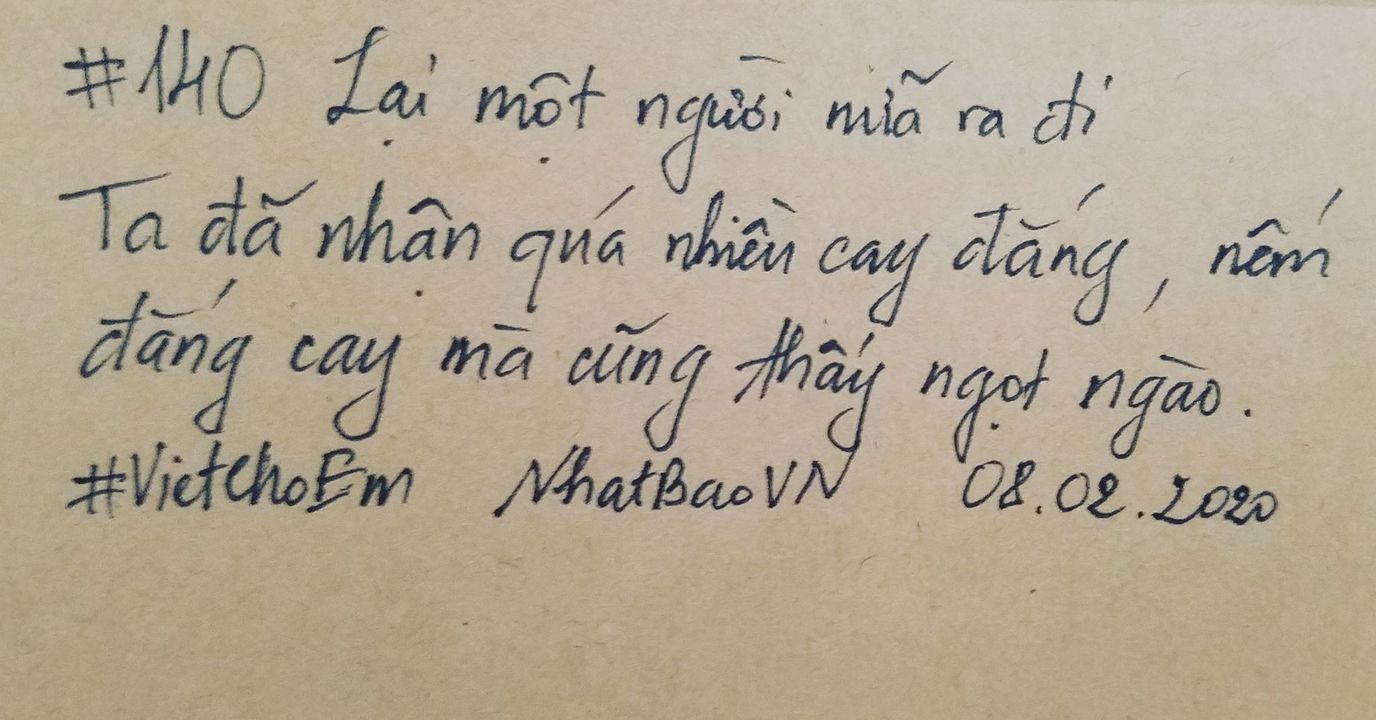 #140 Lại một người nữa ra đi
Ta đã nhận quá nhiều cay đắng, nếm
đắng cay mà cũng thấy ngọt ngào.
#VietChoEm NhatBaoVN 08.02.2020